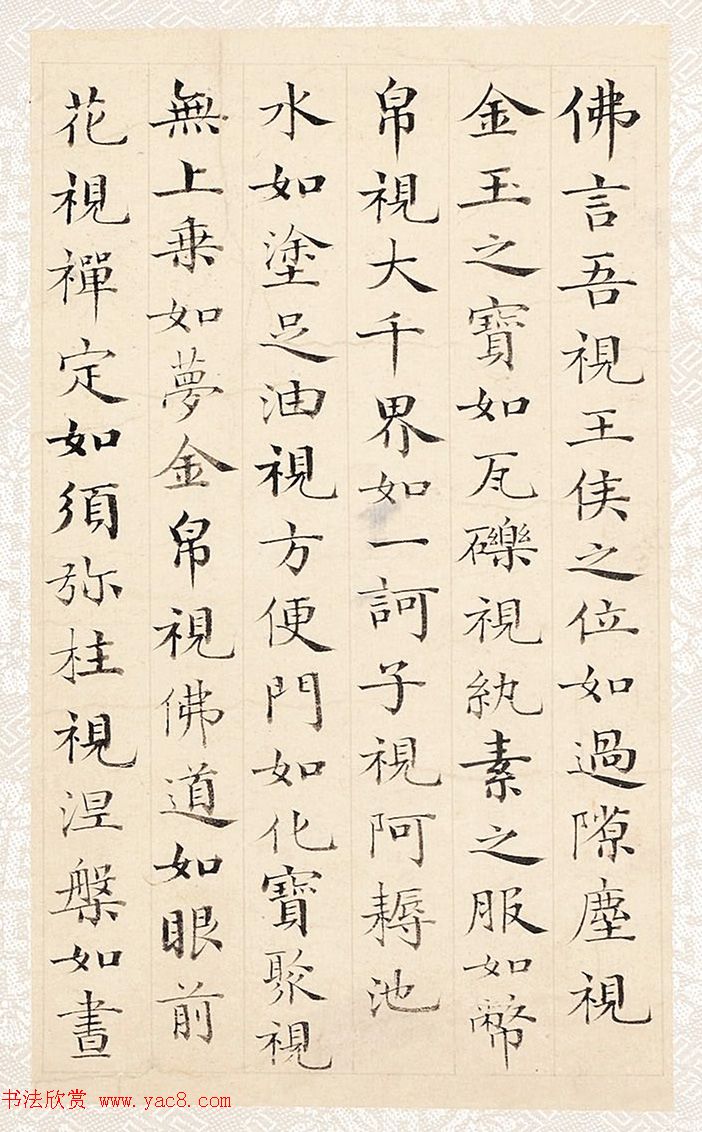 佛言吾視王侯之位如過隙塵視
金玉之寶如瓦礫視紈素之服如幣
帛視大千界如一訶子視阿耨池
水如塗足油視方便門如化寶聚視
無上乗如夢金帛視佛道如眼前
花視禪定如須弥柱視涅槃如晝
书法欣赏 www.yac8.com